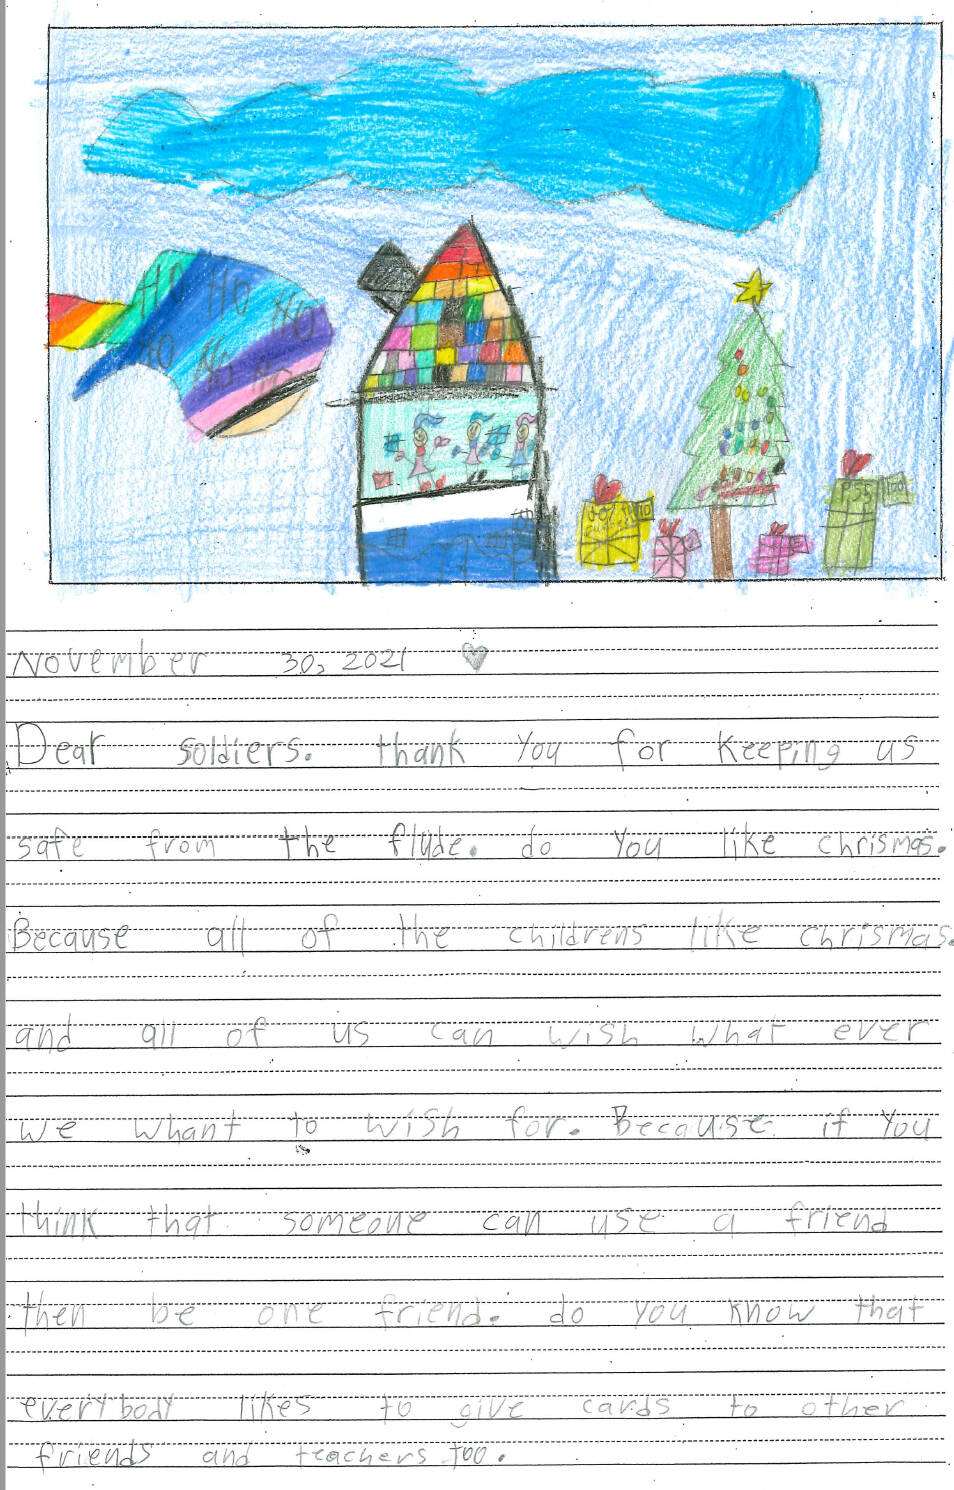 HO HO HO
HO HO HO
November 30, 2021
Dear soldiers. thank you for keeping us
safe from the flude. do you like chrismas.
Because all of the childrens like chrismas.
and all of us can wish what ever
we whant to wish for. Because if you
think that someone can use a friend
then be one friend. do you know that
everybody likes to give cards to other
friends and teachers too.